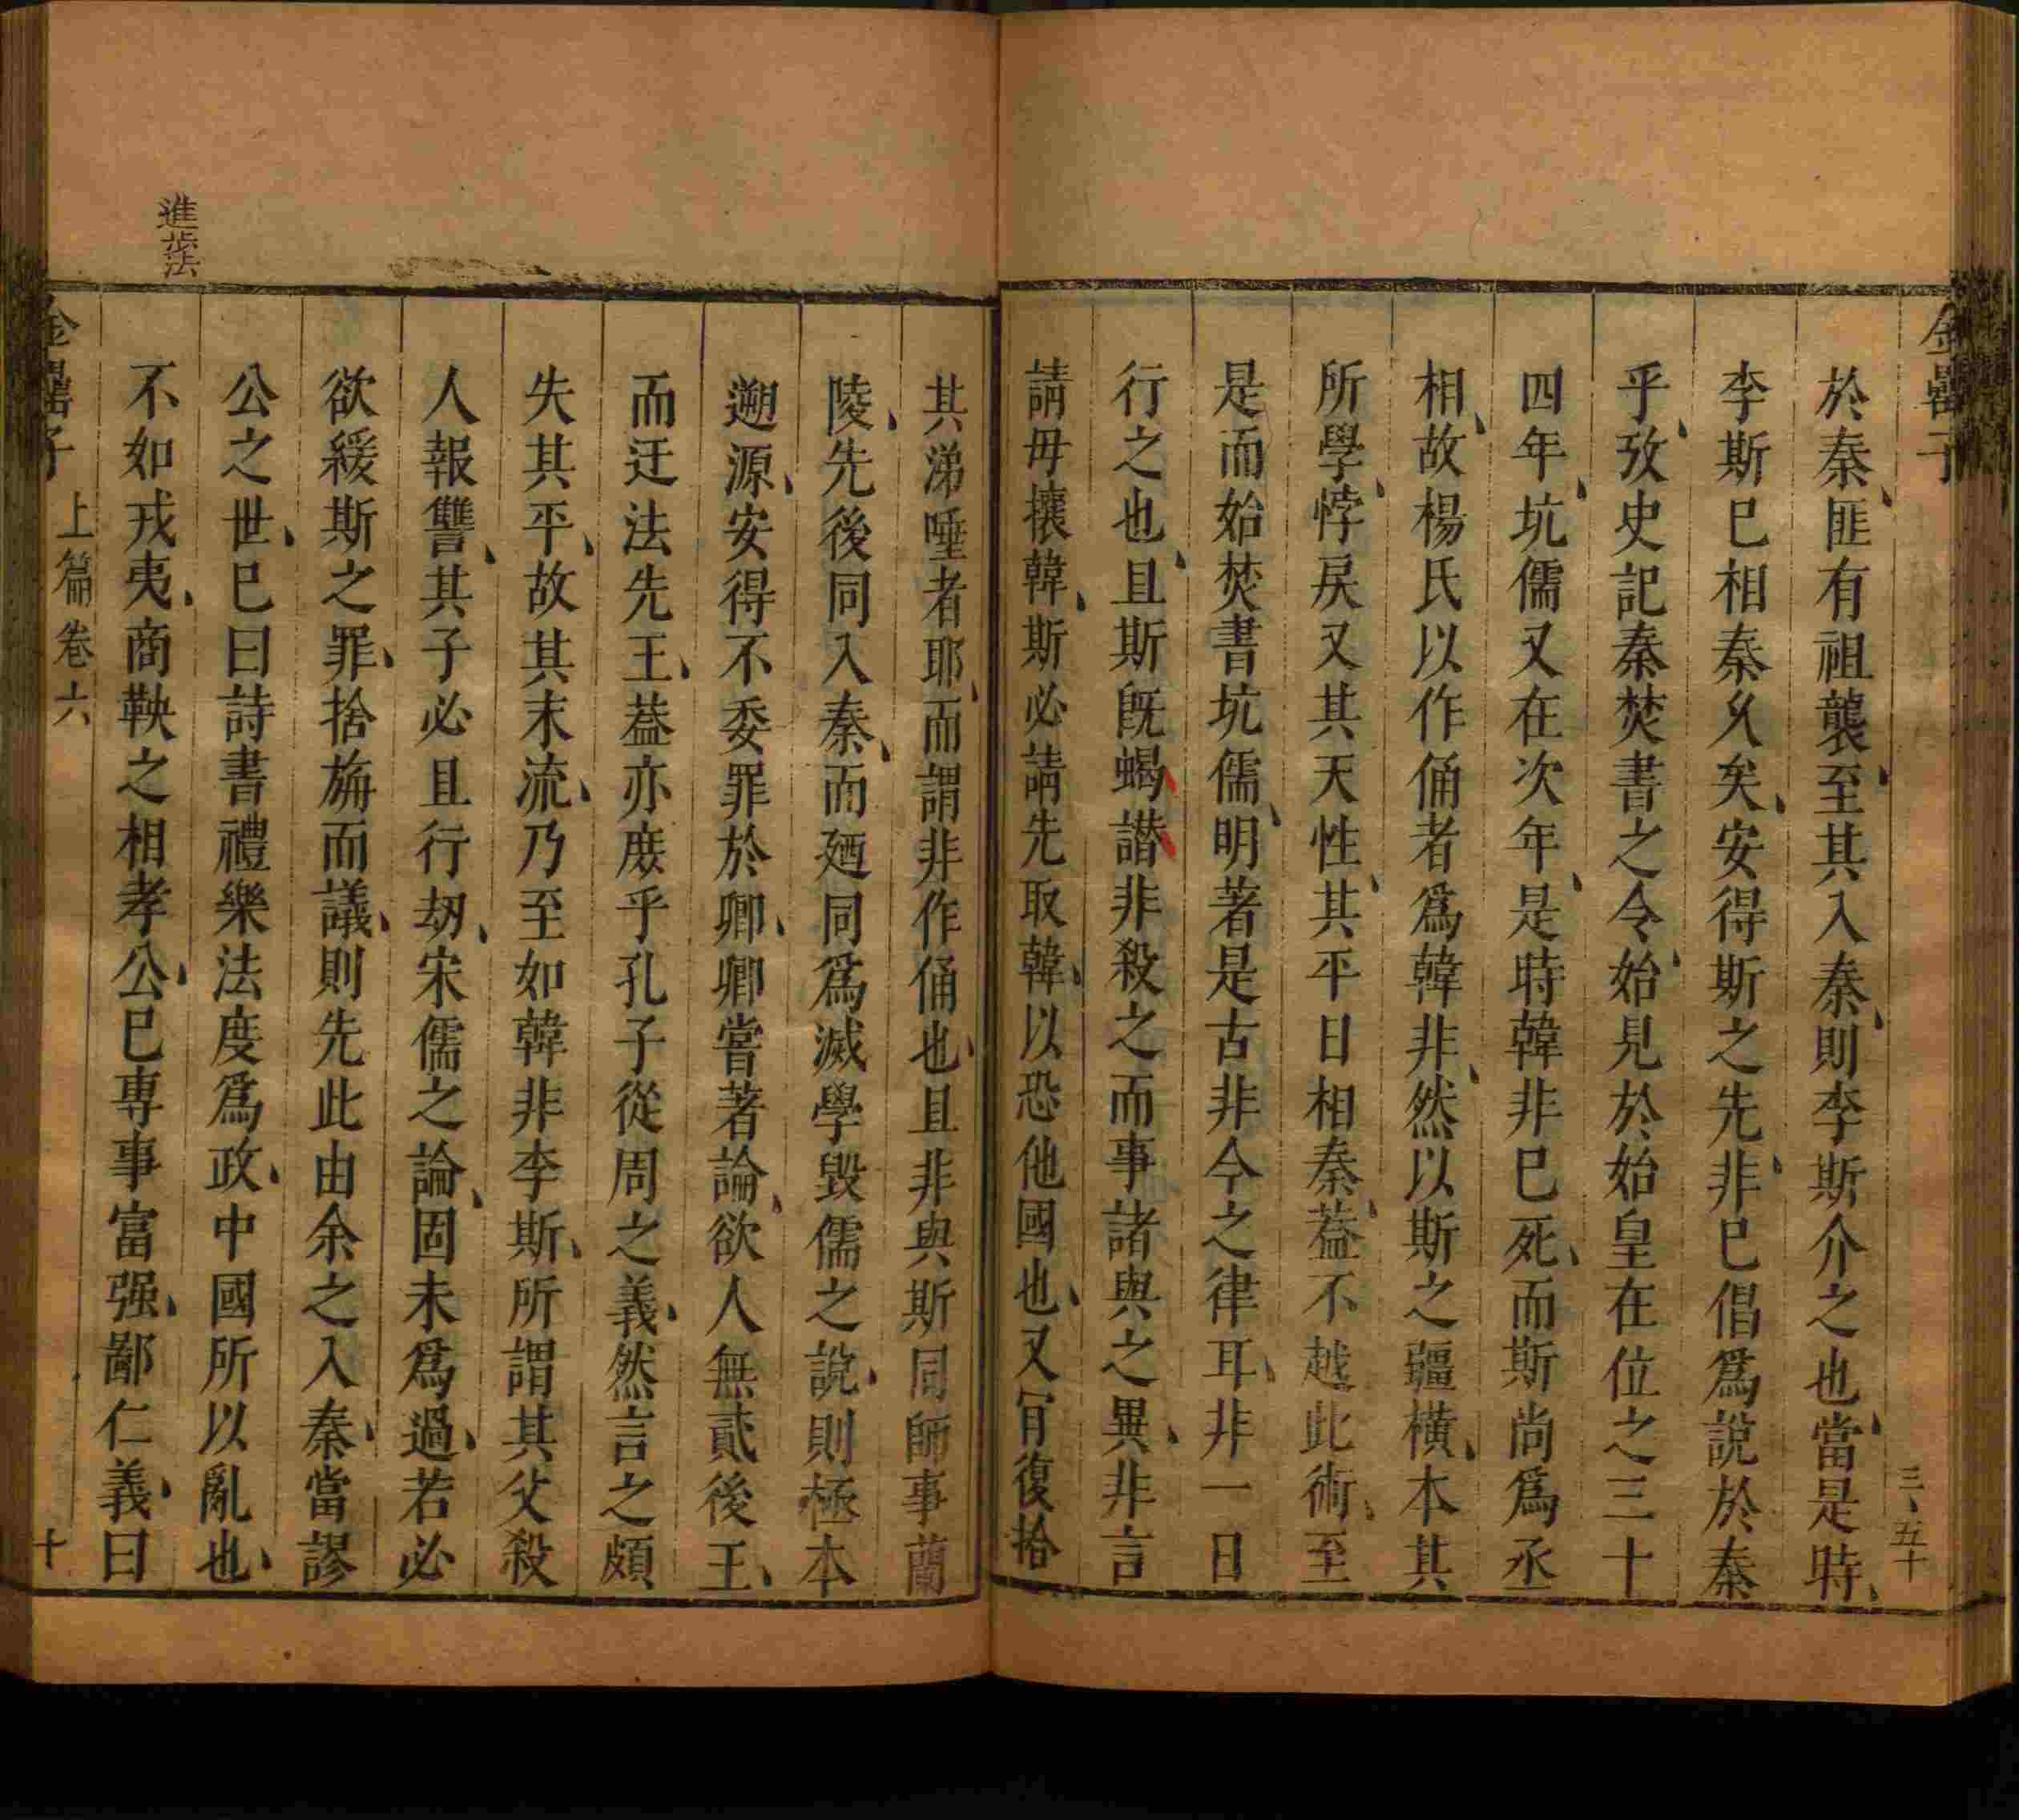 金罍子
三、五十
於秦、匪有祖襲、至其入秦、則李斯介之也、當是時、
李斯已相秦久矣、安得斯之先、非已倡爲說於秦
乎、攷史記秦焚書之令、始見於始皇在位之三十
四年、坑儒又在次年、是時韓非已死、而斯尚爲丞
相、故楊氏以作俑者爲韓非、然以斯之疆橫、本其
所學、悖戾又其天性、其平日相秦、葢不越此術、至
是而始焚書坑儒、明著是古非今之律耳、非一日
行之也、且斯旣蝎譖非殺之而事諸與之異、非言
請毋攘韓、斯必請先取韓、以恐他國也、又肯復拾
其涕唾者耶、而謂非作俑也、且非與斯同師事蘭
陵、先後同入秦、而廼同爲滅學毀儒之說、則極本
遡源、安得不委罪於卿、卿嘗著論、欲人無貳後王、
而迂法先王、葢亦庶乎孔子從周之義、然言之頗
失其平、故其末流、乃至如韓非李斯、所謂其父殺
人報讐、其子必且行刼、宋儒之論、固未爲過、若必
欲緩斯之罪、捨旃而議、則先此由余之入秦、當謬
公之世、已曰詩書禮樂法度爲政、中國所以亂也、
不如戎夷、商鞅之相孝公、已專事富强、鄙仁義、曰
進法
金罍子
上篇卷六
十